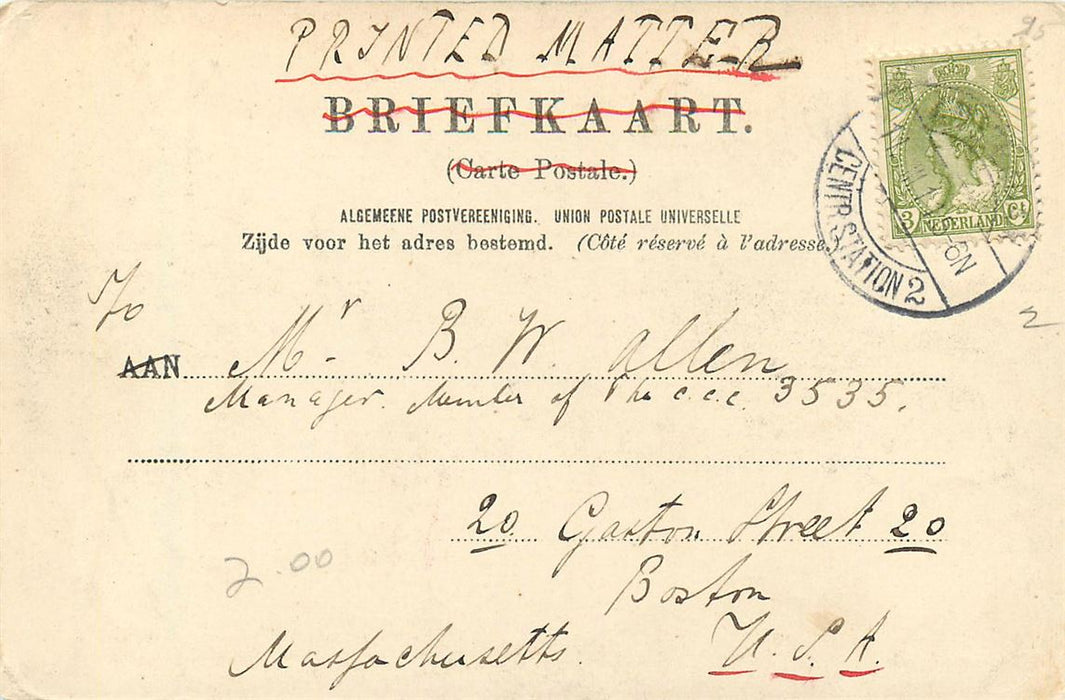 PRINTED MATTER
BRIEFKAART.
(Carte Postale.)
ALGEMEENE POSTVEREENIGING. UNION POSTALE UNIVERSELLE
Zijde voor het adres bestemd. (Côté réservé à l'adresse.)
3 NEDERLAND Ct
CENTR. STATION 2
8N
2
To
AAN Mr. B. W. Allen
Manager. Member of the c.c.c. 3535.
20 Gaston Street 20
Boston
Massachusetts. U.S.A.
2.00